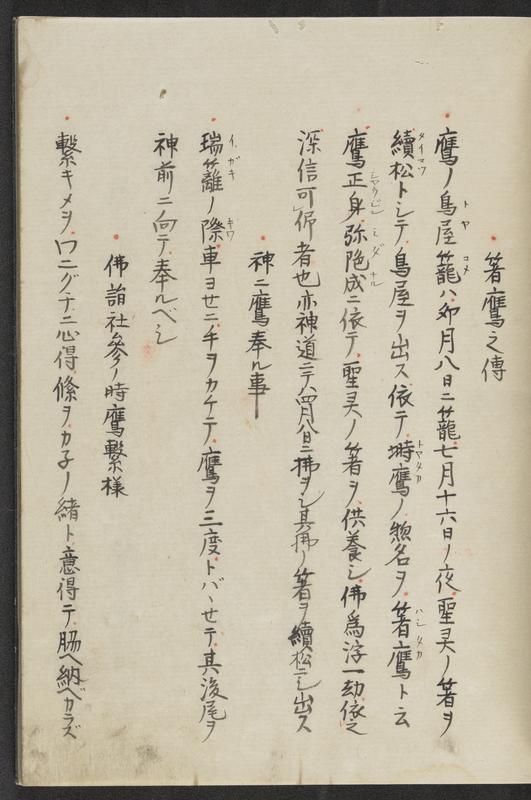 箸鷹之傳
鷹ノ鳥屋籠ハ卯月八日ニ籠七月十六日ノ夜聖灵ノ箸ヲ
續松トシテ鳥屋ヲ出ス依テ塒鷹ノ惣名ヲ箸鷹ト云
鷹正身弥陁成ニ依テ聖灵ノ箸ヲ供養シ佛為浮一劫依之
深信可仰者也亦神道ニテハ四月八日ニ拂ヲシ其拂ノ箸ヲ續松ニシ出ス
神ニ鷹奉ル事
瑞籬ノ際車ヨセニ手ヲカケテ鷹ヲ三度トバヽせテ其後尾ヲ
神前ニ向テ奉ルベシ
佛詣社參ノ時鷹繫様
繫キメヲ口ニグナニ心得條ヲカ子ノ緒ト意得テ脇ヘ納ベカラズ